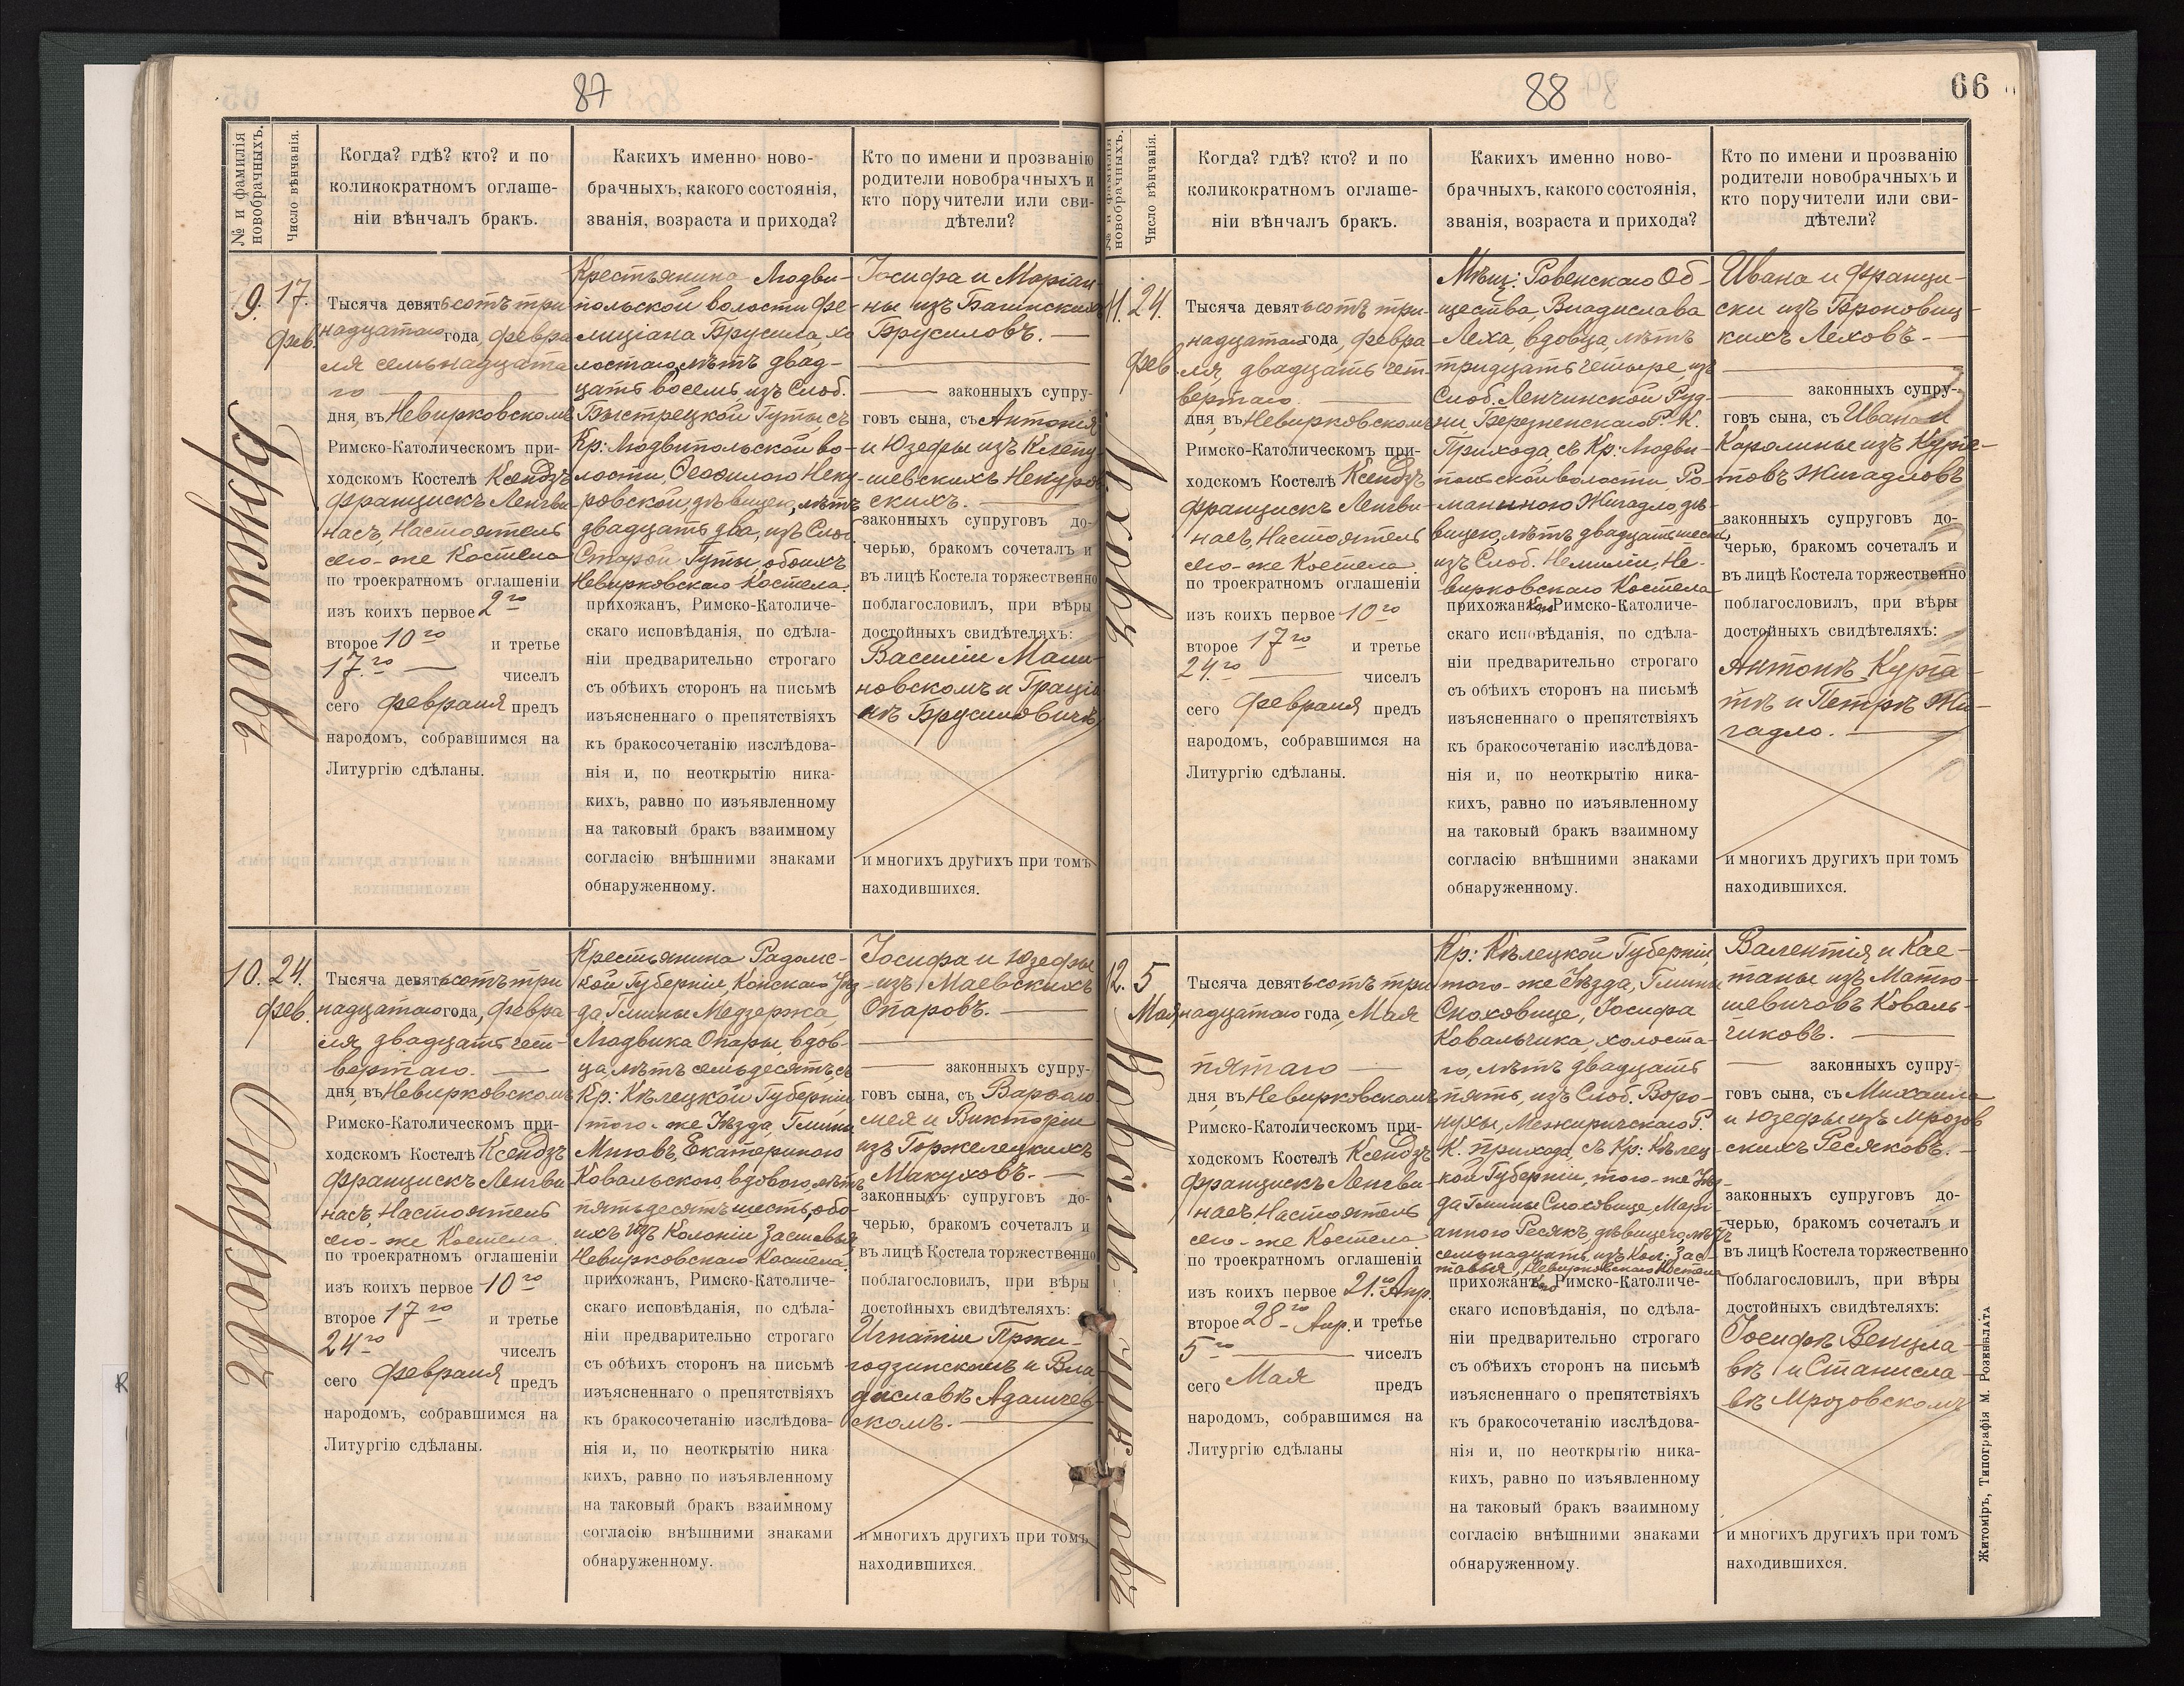 87
№ и фамилія новобрачныхъ.
Число вѣнчанія.
Когда? гдѣ? кто? и по
коликократномъ оглаше-
ніи вѣнчалъ бракъ.
Какихъ именно ново-
брачныхъ, какого состоянія,
званія, возраста и прихода?
Кто по имени и прозванію
родители новобрачныхъ и
кто поручители или сви-
дѣтели?
9.
17.
Фев.
Тысяча девятьсотъ три
надцатаго года, Февра
ля семьнадцата
го
дня, въ Невирковскомъ
Римско-Католическомъ при-
ходскомъ Костелѣ Ксендзъ
Францискъ Ленгви
насъ, Настоятель
сего-же Костела
по троекратномъ оглашеніи
изъ коихъ первое 2го
второе 10го и третье
17.го чиселъ
сего Февраля предъ
народомъ, собравшимся на
Литургію сдѣланы.
Крестьянина Людви-
польской волости Фе-
лиціана Брусила, хо
лостаго, лѣтъ двад-
цать восемь, изъ Слоб.
Быстрецкой Гуты, съ
Кр: Людвипольской во-
лости, Неку
ровской, дѣвицею, лѣтъ
двадцать два, изъ Слоб
Старой Гуты, обоихъ
Невирковскаго Костела.
прихожанъ, Римско-Католиче-
скаго исповѣданія, по сдѣла-
ніи предварительно строгаго
съ обѣихъ сторонъ на письмѣ
изъясненнаго о препятствіяхъ
къ бракосочетанію изслѣдова-
нія и, по неоткрытію ника-
кихъ, равно по изъявленному
на таковый бракъ взаимному
согласію внѣшними знаками
обнаруженному.
Іосифа и Маріан
ны изъ Багинскихъ
Брусиловъ.
законныхъ супру-
говъ сына, съ Антонія
и Юзефы изъ
Некуров
скихъ.
законныхъ супруговъ до-
черью, бракомъ сочеталъ и
въ лицѣ Костела торжественно
поблагословилъ, при вѣры
достойныхъ свидѣтеляхъ:
Василіи Мали-
новскомъ и Граціа
нѣ Брусиловичѣ
и многихъ другихъ при томъ
находившихся.
10.
24.
Фев.
Тысяча девятьсотъ три
надцатаго года, Февра
ля двадцать чет-
вертаго.
дня, въ Невирковскомъ
Римско-Католическомъ при-
ходскомъ Костелѣ Ксендзъ
Францискъ Ленгви
насъ, Настоятель
сего-же Костела.
по троекратномъ оглашеніи
изъ коихъ первое 10го
второе 17го и третье
24го чиселъ
сего Февраля предъ
народомъ, собравшимся на
Литургію сдѣланы.
Крестьянина Радомс-
кой Губерніи, Конскаго Уѣз
да Гмины Медзержа,
Людвика Опары, вдов-
ца, лѣтъ семьдесятъ, съ
Кр: Кѣлецкой Губерніи
того-же Уѣзда, Гмины
Мновъ, Екатериною
Ковальского, вдовою, лѣтъ
пятьдесятъ шесть, обо-
ихъ изъ Колоніи Заставья
Невирковскаго Костела.
прихожанъ, Римско-Католиче-
скаго исповѣданія, по сдѣла-
ніи предварительно строгаго
съ обѣихъ сторонъ на письмѣ
изъясненнаго о препятствіяхъ
къ бракосочетанію изслѣдова-
нія и, по неоткрытію ника
кихъ, равно по изъявленному
на таковый бракъ взаимному
согласію внѣшними знаками
обнаруженному.
Іосифа и Юзефы
изъ Маевскихъ
Опаровъ.
законныхъ супру-
говъ сына, съ Варѳоло
мея и Викторіи
изъ Горжелецкихъ
Макуховъ.
законныхъ супруговъ до-
черью, бракомъ сочеталъ и
въ лицѣ Костела торжественно
поблагословилъ, при вѣры
достойныхъ свидѣтеляхъ:
Игнатіи Пржи-
годзинскомъ и Вла
диславѣ Адамчев-
скомъ.
и многихъ другихъ при томъ
находившихся.
88
66
№ и фамилія новобрачныхъ.
Число вѣнчанія.
Когда? гдѣ? кто? и по
коликократномъ оглаше-
ніи вѣнчалъ бракъ.
Какихъ именно ново-
брачныхъ, какого состоянія,
званія, возраста и прихода?
Кто по имени и прозванію
родители новобрачныхъ и
кто поручители или сви-
дѣтели?
11.
24.
Фев.
Тысяча девятьсотъ три-
надцатаго года, Февра
ля, двадцать чет-
вертаго.
дня, въ Невирковскомъ
Римско-Католическомъ при-
ходскомъ Костелѣ Ксендзъ
Францискъ Ленгви-
насъ, Настоятель
сего-же Костела
по троекратномъ оглашеніи
изъ коихъ первое 10го
второе 17го и третье
24.го чиселъ
сего Февраля предъ
народомъ, собравшимся на
Литургію сдѣланы.
Мѣщ: Ровенскаго Об-
щества, Владислава
Леха, вдовца, лѣтъ
тридцать четыре, изъ
Слоб. Ленчинской Руд-
ни Березненскаго Р. К.
Прихода, съ Кр: Людви-
польской волости Ро-
маниною Жигадло, дѣ-
вицею, лѣтъ двадцать шесть,
изъ Слоб. Немили, Не-
вирковскаго Костела
прихожанъ, Римско-Католиче-
скаго исповѣданія, по сдѣла-
ніи предварительно строгаго
съ обѣихъ сторонъ на письмѣ
изъясненнаго о препятствіяхъ
къ бракосочетанію изслѣдова-
нія и, по неоткрытію ника-
кихъ, равно по изъявленному
на таковый бракъ взаимному
согласію внѣшними знаками
обнаруженному.
Ивана и Францис-
ски изъ Броновиц-
кихъ Леховъ.
законныхъ супру-
говъ сына, съ Ивана и
Каролины изъ Курга-
товъ Жигадловъ
законныхъ супруговъ до-
черью, бракомъ сочеталъ и
въ лицѣ Костела торжественно
поблагословилъ, при вѣры
достойныхъ свидѣтеляхъ:
Антонѣ Курга-
тѣ и Петрѣ Жи-
гадло.
и многихъ другихъ при томъ
находившихся.
12.
5
Мая
Тысяча девятьсотъ три
надцатаго года, Мая
пятаго
дня, въ Невирковскомъ
Римско-Католическомъ при-
ходскомъ Костелѣ Ксендзъ
Францискъ Ленгви-
насъ, Настоятель
сего-же Костела
по троекратномъ оглашеніи
изъ коихъ первое 21.го Апр.
второе 28го Апр. и третье
5го чиселъ
сего Мая предъ
народомъ, собравшимся на
Литургію сдѣланы
Кр: Кѣлецкой Губерніи,
того-же Уѣзда, Гмины
Снохов­ице, Іосифа
Ковальчика, холоста-
го, лѣтъ двадцать
пять, изъ Слоб. Воро-
нухи, Межиричскаго Р.
К. прихода, съ Кр: Кѣлец-
кой Губерніи, того-же Уѣз-
да Гмины Сноховице, Марі-
анною Песякъ, дѣвицею, лѣтъ
семьнадцать, изъ Кол: Зас-
тавья, Невирковскаго Костела
прихожанъ, Римско-Католиче-
скаго исповѣданія, по сдѣла-
ніи предварительно строгаго
съ обѣихъ сторонъ на письмѣ
изъясненнаго о препятствіяхъ
къ бракосочетанію изслѣдова-
нія и, по неоткрытію ника-
кихъ, равно по изъявленному
на таковый бракъ взаимному
согласію внѣшними знаками
обнаруженному.
Валентія и Кае-
таны изъ Матю-
шевичовъ Коваль-
чиковъ.
законныхъ супру-
говъ сына, съ Михаила
и Юзефы изъ Мрозов
скихъ Песяковъ.
законныхъ супруговъ до-
черью, бракомъ сочеталъ и
въ лицѣ Костела торжественно
поблагословилъ, при вѣры
достойныхъ свидѣтеляхъ:
Іосифѣ Венцла-
вѣ и Станисла-
вѣ Мрозовскомъ
и многихъ другихъ при томъ
находившихся.
Житоміръ, Типографія М. Розенблата